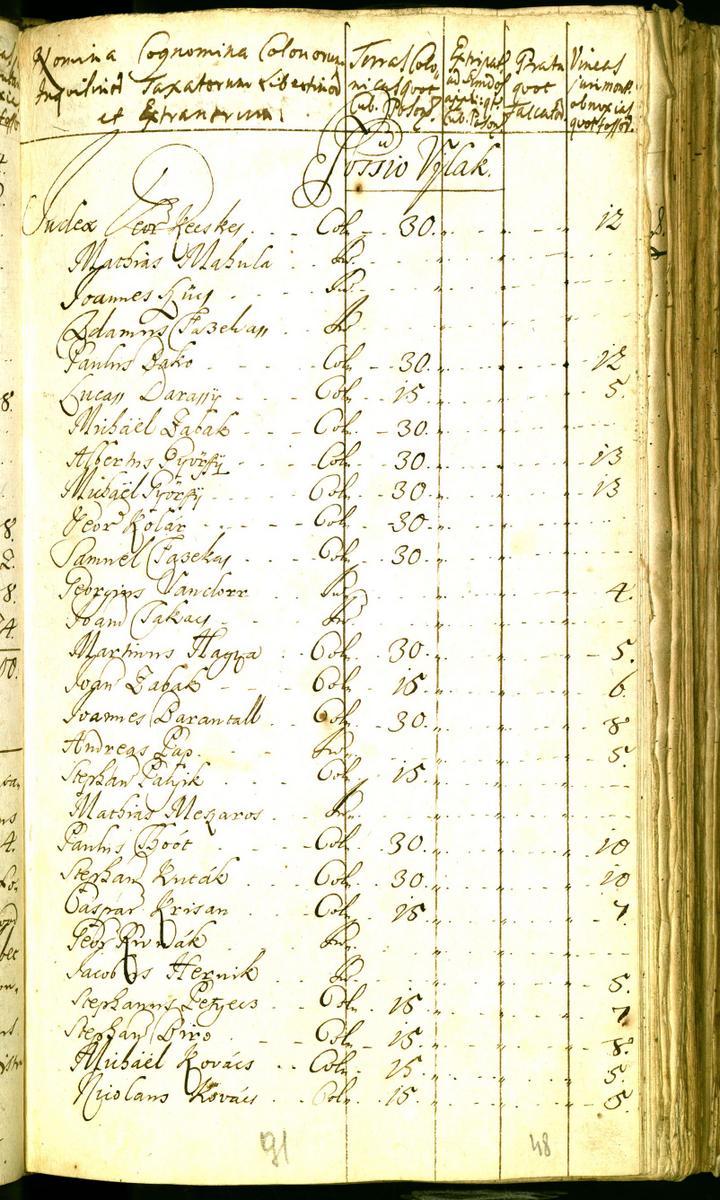 Nomina Cognomina Colonorum Inquilinor Taxatorum Libertinor et Extraneorum
Terras Colonicas quot Cub. Poson
Cub. Poson
Prata quot Falcator
Vineas juri mont. obnoxias quot fossor.
Possio Ujlak.
Judex Geor Kecskes Col. 30 12
Mathias Mahula Inq
Joannes Inq
Adamus Inq
Paulus Bako Col. 30 12
Lucas Darassy Col. 15 5.
Michaël Zabak Col. 30.
Albertus Györffy Col. 30 13
Michaël Györffy Col. 30 13
Geor Kolar Col. 30
Samuel Fazekas Col. 30
Georgius Inq 4.
Joan Takacs Inq
Martinus Hagya Col. 30. 5.
Joan Zabak Col. 15 6.
Joannes Barantall Col. 30 8
Andreas Pap. Inq 5.
Stephan Paljik Col. 15
Mathias Meszaros Inq
Paulus Col. 30. 10
Stephan Kuták Col. 30 10
Caspar Krisan Col. 15 7
Geor Inq
Jacobus Hernik Inq 5.
Stephanus Col. 15 7
Stephan Biro Col. 15. 8.
Michaël Kovács Col. 15 5.
Nicolaus Kovács Col. 15. 5.
91 48